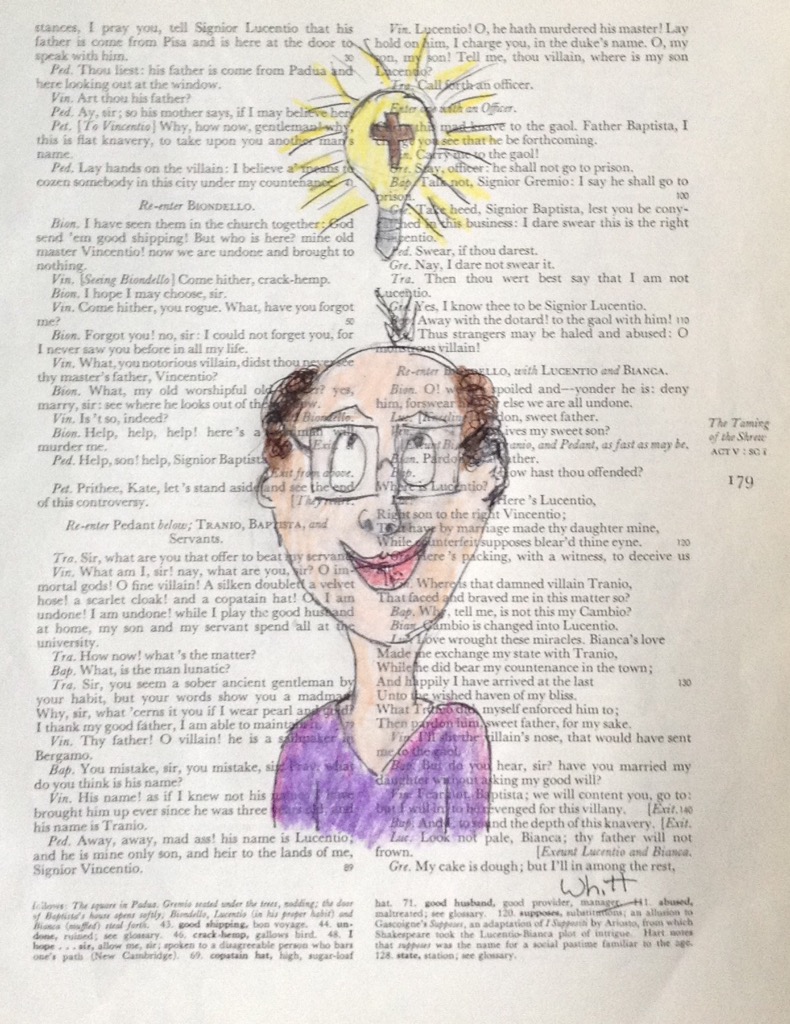 stances, I pray you, tell Signior Lucentio that his
father is come from Pisa and is here at the door to
speak with him. 30
Ped. Thou liest: his father is come from Padua and
here looking out at the window.
Vin. Art thou his father?
Ped. Ay, sir; so his mother says, if I may believe her.
Pet. [To Vincentio] Why, how now, gentleman! why,
this is flat knavery, to take upon you another man's
name.
Ped. Lay hands on the villain: I believe a' means to
cozen somebody in this city under my countenance.
Re-enter BIONDELLO.
Bion. I have seen them in the church together: God
send 'em good shipping! But who is here? mine old
master Vincentio! now we are undone and brought to
nothing.
Vin. [Seeing Biondello] Come hither, crack-hemp.
Bion. I hope I may choose, sir.
Vin. Come hither, you rogue. What, have you forgot
me? 50
Bion. Forgot you! no, sir: I could not forget you, for
I never saw you before in all my life.
Vin. What, you notorious villain, didst thou never see
thy master's father, Vincentio?
Bion. What, my old worshipful old yes,
marry, sir: see where he looks out of the window.
Vin. Is't so, indeed?
Bion. Help, help, help! here's a
murder me. Exit
Ped. Help, son! help, Signior Baptista
Exit from above.
Pet. Prithee, Kate, let's stand aside and see the end
of this controversy. They
Re-enter Pedant below; TRANIO, BAPTISTA, and
Servants.
Tra. Sir, what are you that offer to beat my servant
Vin. What am I, sir! nay, what are you, sir? O im-
mortal gods! O fine villain! A silken doublet! a velvet
hose! a scarlet cloak! and a copatain hat! O, I am
undone! I am undone! while I play the good husband
at home, my son and my servant spend all at the
university.
Tra. How now! what's the matter?
Bap. What, is the man lunatic?
Tra. Sir, you seem a sober ancient gentleman by
your habit, but your words show you a madman.
Why, sir, what 'cerns it you if I wear pearl and gold?
I thank my good father, I am able to maintain
Vin. Thy father! O villain! he is a sailmaker in
Bergamo.
Bap. You mistake, sir, you mistake, sir. Pray, what
do you think is his name?
Vin. His name! as if I knew not his name: I have
brought him up ever since he was three years old, and
his name is Tranio.
Ped. Away, away, mad ass! his name is Lucentio;
and he is mine only son, and heir to the lands of me,
Signior Vincentio. 89
Vin. Lucentio! O, he hath murdered his master! Lay
hold on him, I charge you, in the duke's name. O, my
son, my son! Tell me, thou villain, where is my son
Lucentio?
Tra. Call forth an officer.
Enter one with an Officer.
this mad knave to the gaol. Father Baptista, I
charge you see that he be forthcoming.
Vin. Carry me to the gaol!
Gre. Stay, officer: he shall not go to prison.
Bap. Talk not, Signior Gremio: I say he shall go to
prison. 100
Gre. Take heed, Signior Baptista, lest you be cony-
catched in this business: I dare swear this is the right
Vincentio.
Ped. Swear, if thou darest.
Gre. Nay, I dare not swear it.
Tra. Then thou wert best say that I am not
Lucentio.
Gre. Yes, I know thee to be Signior Lucentio.
Away with the dotard! to the gaol with him! 110
Thus strangers may be haled and abused: O
monstrous villain!
Re-enter BIONDELLO, with LUCENTIO and BIANCA.
Bion. O! we spoiled and—yonder he is: deny
him, forswear him, else we are all undone.
Luc. [Kneeling] Pardon, sweet father.
Lives my sweet son?
[Exeunt Biondello, Tranio, and Pedant, as fast as may be.
Bian. Pardon, father.
Bap. How hast thou offended?
Where is Lucentio?
Here's Lucentio,
Right son to the right Vincentio;
That have by marriage made thy daughter mine,
While counterfeit supposes blear'd thine eyne. 120
Gre. Here's packing, with a witness, to deceive us
Vin. Where is that damned villain Tranio,
That faced and braved me in this matter so?
Bap. Why, tell me, is not this my Cambio?
Bian. Cambio is changed into Lucentio.
Luc. Love wrought these miracles. Bianca's love
Made me exchange my state with Tranio,
While he did bear my countenance in the town;
And happily I have arrived at the last 130
Unto the wished haven of my bliss.
What Tranio did, myself enforced him to;
Then pardon him, sweet father, for my sake.
Vin. I'll slit the villain's nose, that would have sent
me to the gaol.
Bap. But do you hear, sir? have you married my
daughter without asking my good will?
Vin. Fear not, Baptista; we will content you, go to:
but I will in, to be revenged for this villany. [Exit. 140
Bap. And I, to sound the depth of this knavery. [Exit.
Luc. Look not pale, Bianca; thy father will not
frown. [Exeunt Lucentio and Bianca.
Gre. My cake is dough; but I'll in among the rest,
Whitt
The Taming
of the Shrew
ACT V : SC I
179
follows: The square in Padua. Gremio seated under the trees, nodding; the door
of Baptista's house opens softly; Biondello, Lucentio (in his proper habit) and
Bianca (muffled) steal forth. 43. good shipping, bon voyage. 44. un-
done, ruined; see glossary. 46. crack-hemp, gallows bird. 48. I
hope . . . sir, allow me, sir; spoken to a disagreeable person who bars
one's path (New Cambridge). 69. copatain hat, high, sugar-loaf
hat. 71. good husband, good provider, manager. 111. abused,
maltreated; see glossary. 120. supposes, substitutions; an allusion to
Gascoigne's Supposes, an adaptation of I Suppositi by Ariosto, from which
Shakespeare took the Lucentio-Bianca plot of intrigue. Hart notes
that supposes was the name for a social pastime familiar to the age.
128. state, station; see glossary.